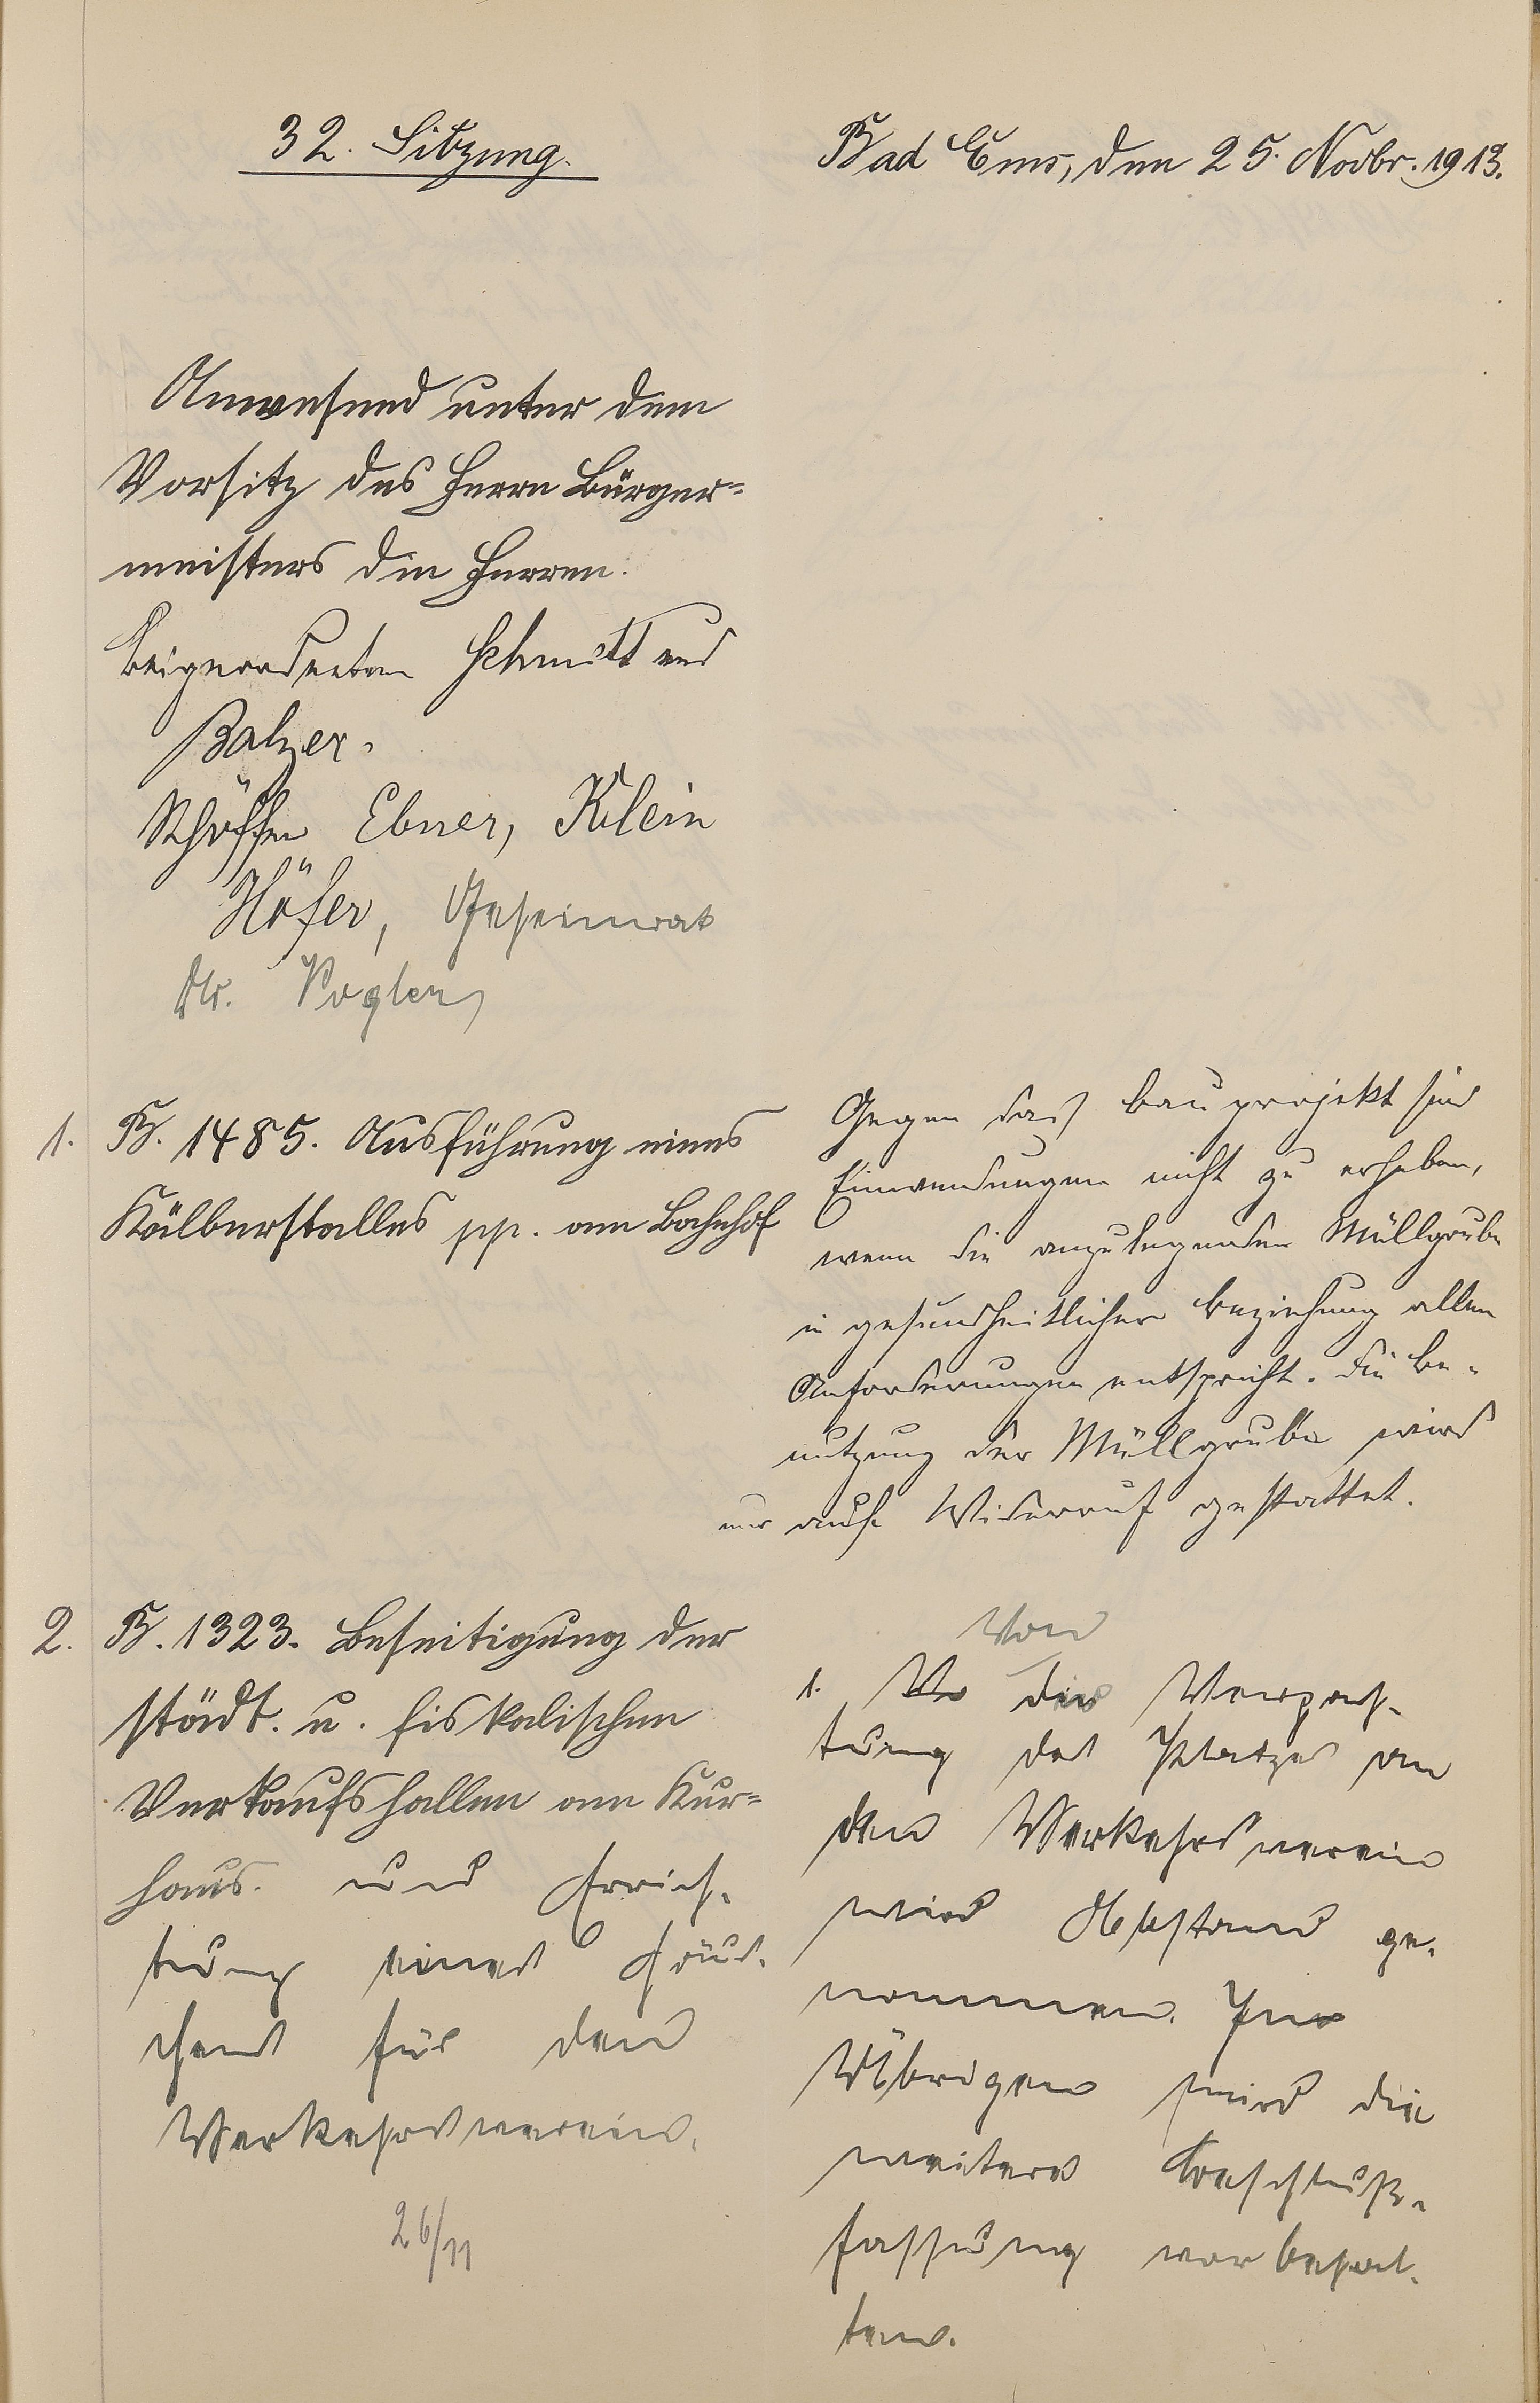 32. Sitzung.
Bad Ems, den 25. Novbr. 1913.
Anwesend unter dem
Vorsitz des Herrn Bürger-
meisters die Herren:
Beigeordneten Schmitt und
Balzer.
Schöffen Ebner, Klein
Höfer, Geheimrat
Dr. Vogler,
1. B. 1485. Ausführung eines
Kälberstalles pp. am Bahnhof
Gegen das Bauprojekt sind
Einwendungen nicht zu erheben,
wenn die anzulegenden Müllgrube
in gesundheitlicher Beziehung allen
Anforderungen entspricht. Die Be-
nutzung der Müllgrube wird
nur auf Widerruf gestattet.
2. B. 1323. Beseitigung der
städt. u. fiskalischen
Verkaufshallen am Kur-
haus. und Errich-
tung eines Häus-
chens für den
Verkehrsverein.
26/11
Von
1. Vo der Verpach-
tung des Platzes an
den Verkehrsverein
wird Abstand ge-
nommen. Im
Übrigen wird die
weitere Beschluß-
fassung vorbehal-
ten.